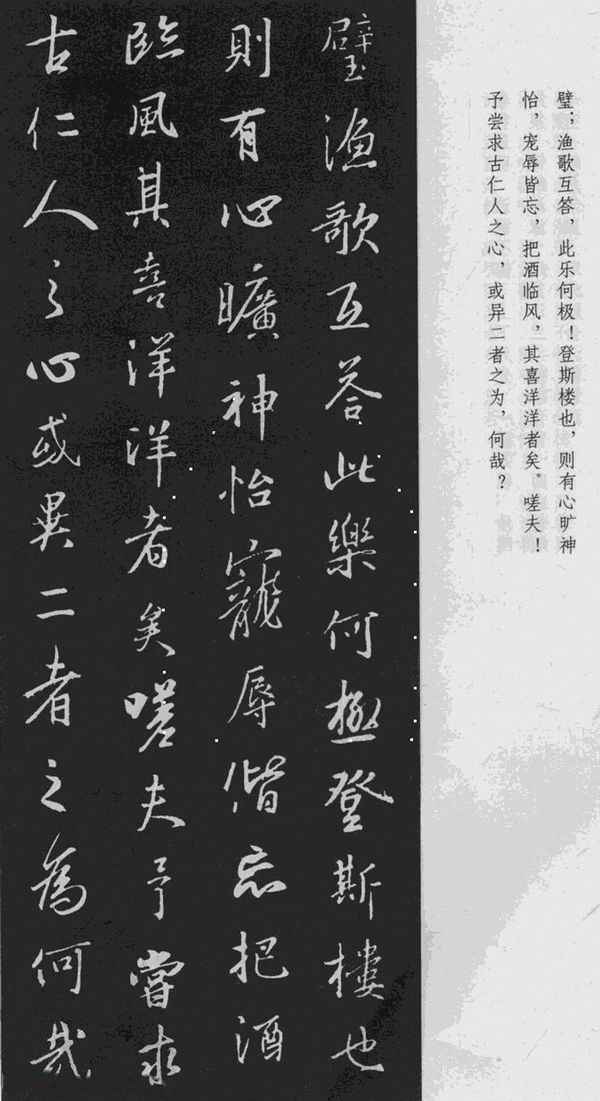 璧；渔歌互答，此乐何极！登斯楼也，则有心旷神
怡，宠辱皆忘，把酒临风，其喜洋洋者矣。嗟夫！
予尝求古仁人之心，或异二者之为，何哉？
璧漁歌互答此樂何極登斯樓也
則有心曠神怡寵辱偕忘把酒
臨風其喜洋洋者矣嗟夫予嘗求
古仁人之心或異二者之為何哉